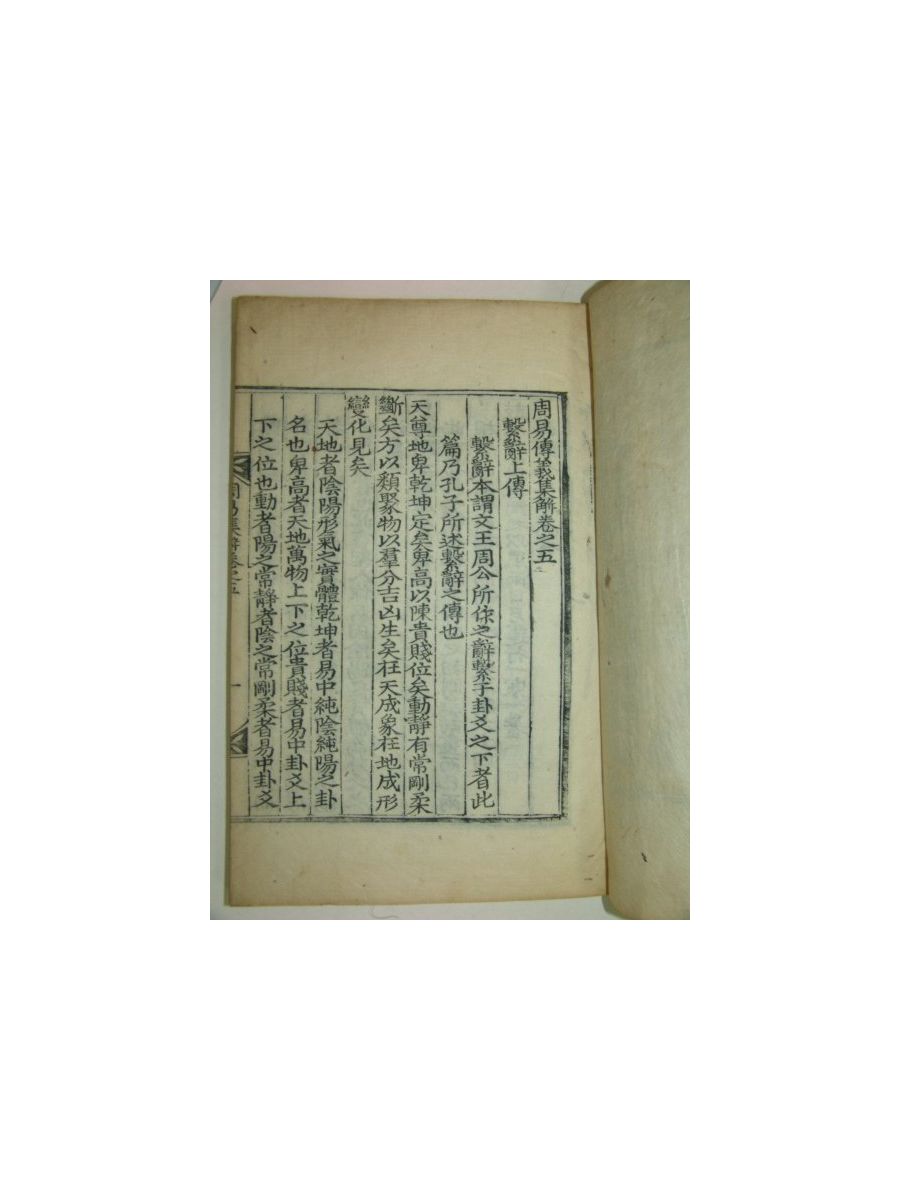 周易傳義集解卷之五
繫辭上傳
繫辭本謂文王周公所作之辭繫于卦爻之下者此
篇乃孔子所述繫辭之傳也
天尊地卑乾坤定矣卑高以陳貴賤位矣動靜有常剛柔
斷矣方以類聚物以羣分吉凶生矣在天成象在地成形
變化見矣
天地者陰陽形氣之實體乾坤者易中純陰純陽之卦
名也卑高者天地萬物上下之位貴賤者易中卦爻上
下之位也動者陽之常靜者陰之常剛柔者易中卦爻
周易集解卷之五
一